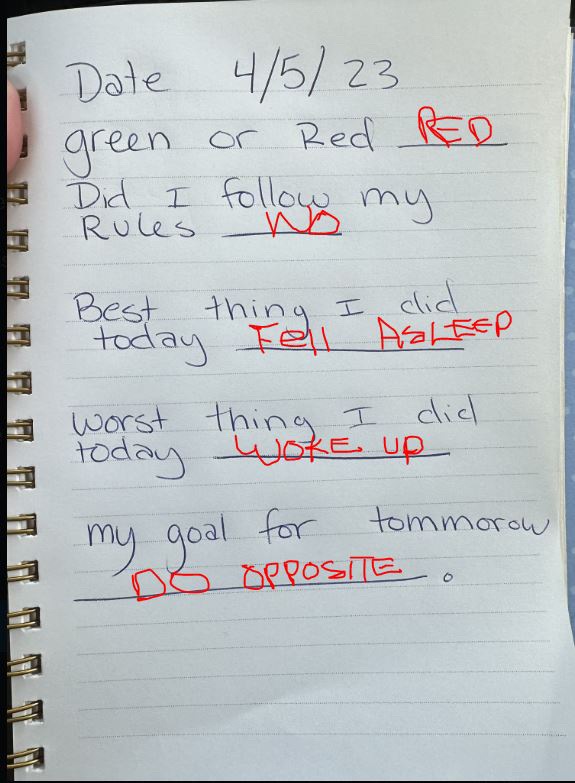 Date 4/5/23
green or Red RED
Did I follow my
Rules NO
Best thing I did
today Fell ASLEEP
worst thing I did
today WOKE UP
my goal for tommorow
DO OPPOSITE.